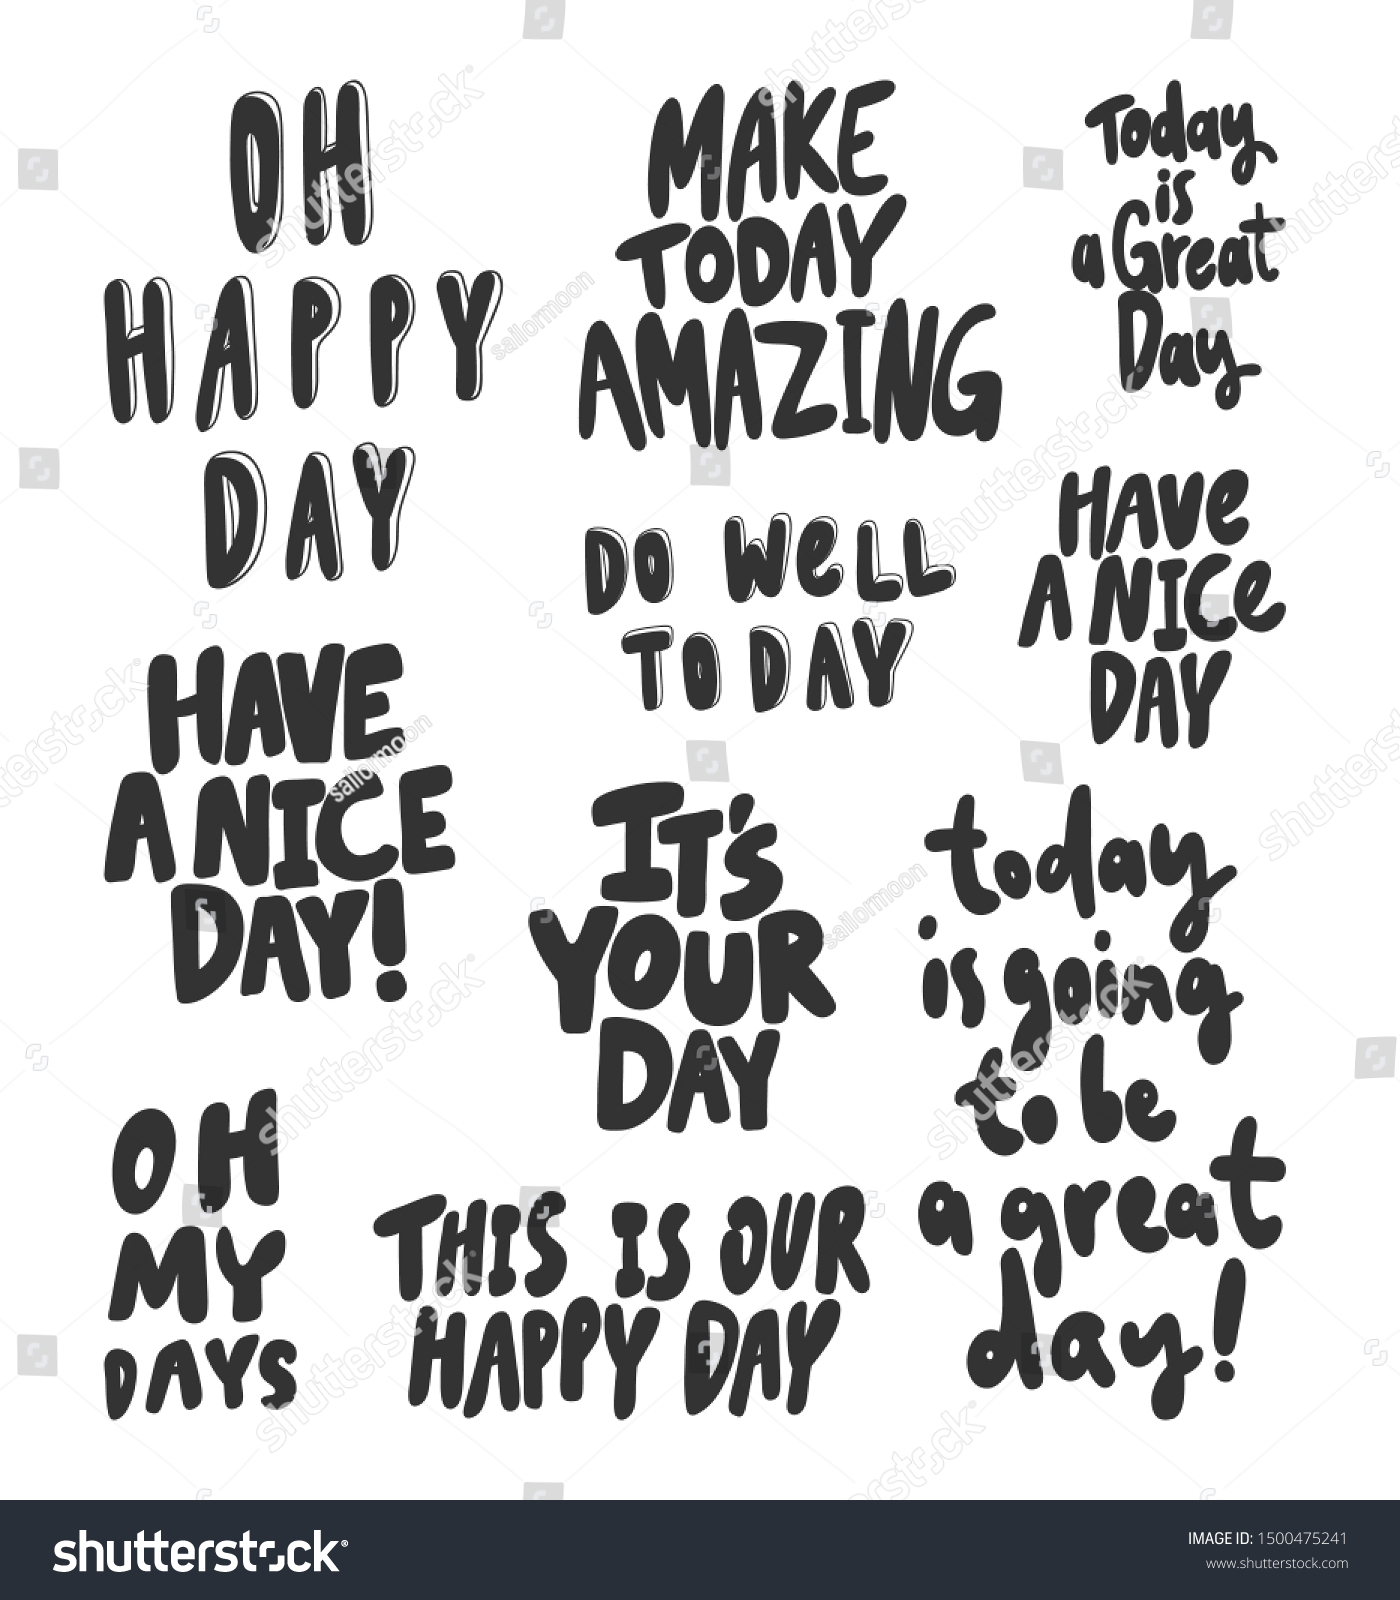 OH
HAPPY
DAY
MAKE
TODAY
AMAZING
Today
is
a Great
Day
DO WeLL
TODAY
HAVe
A NICe
DAY
HAVE
A NICE
DAY!
IT's
YOUR
DAY
today
is going
to be
a great
day!
OH
MY
DAYS
THIS IS OUR
HAPPY DAY
shutterstock
sailormoon
shutterstock
IMAGE ID: 1500475241
www.shutterstock.com